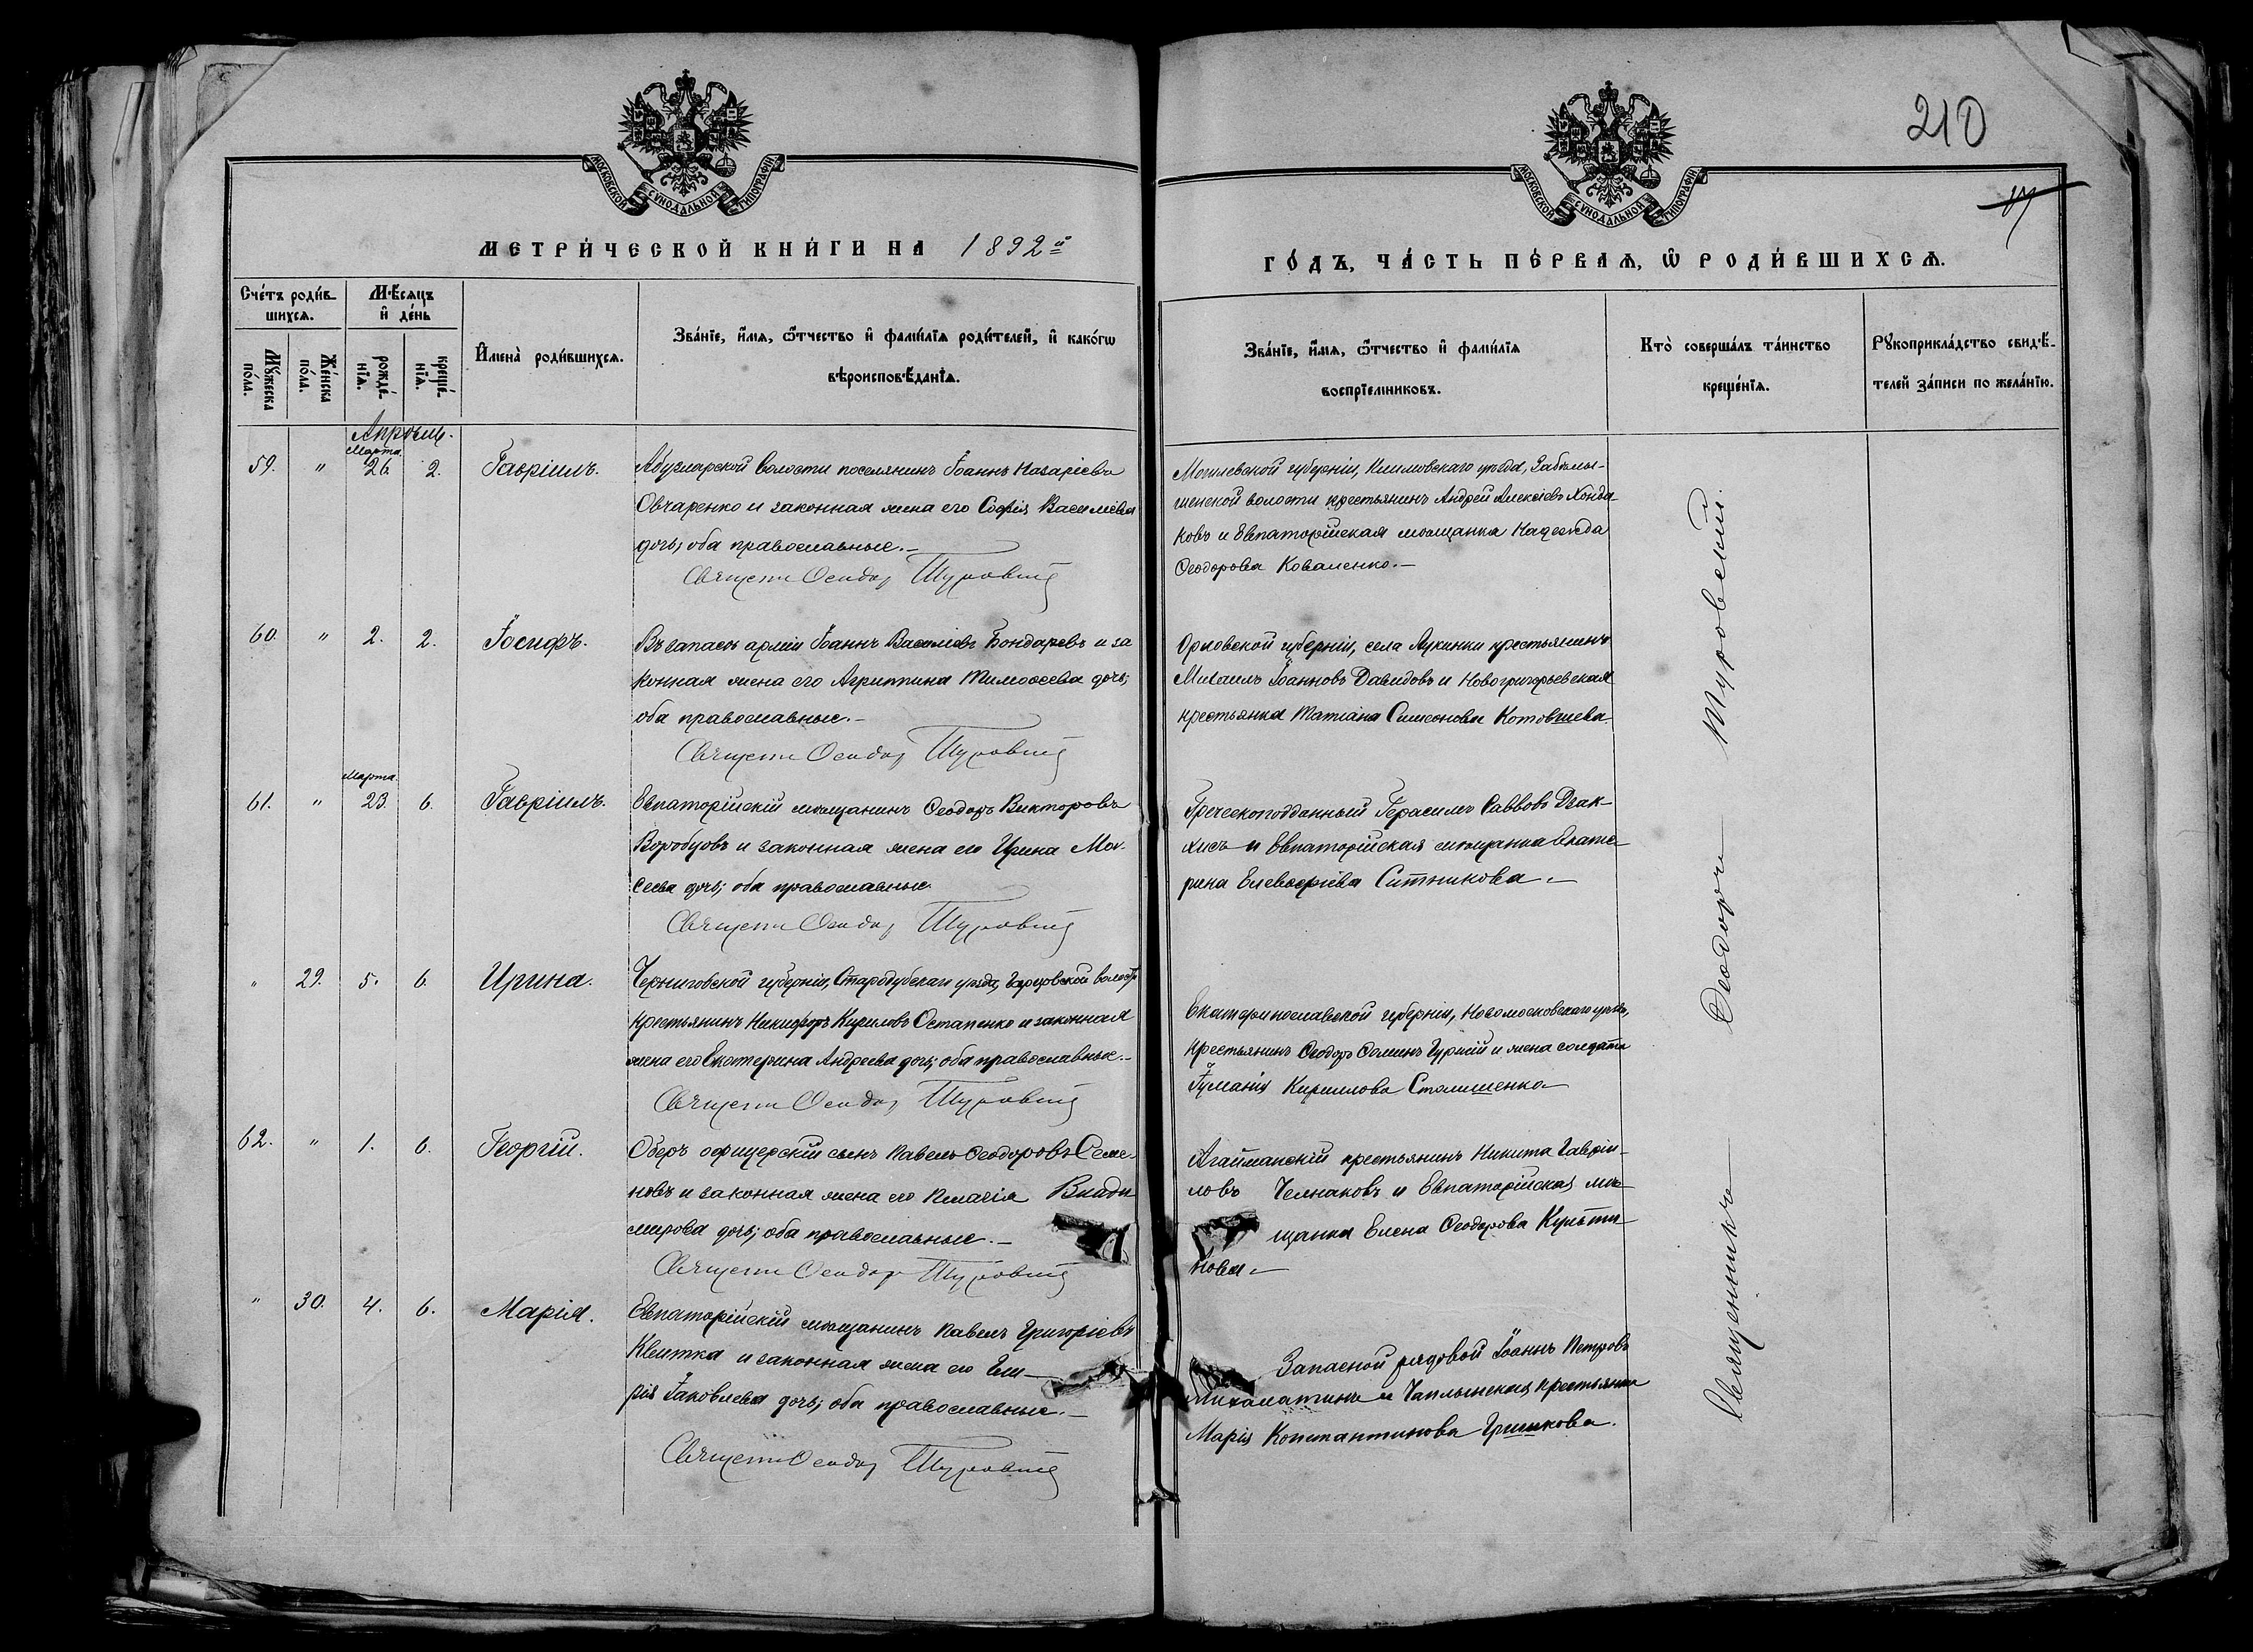 210
МОСКОВСКОЙ СѴНОДАЛЬНОЙ ТИПОГРАФІИ
МОСКОВСКОЙ СѴНОДАЛЬНОЙ ТИПОГРАФІИ
МЕТРИ́ЧЕСКОЙ КНИ́ГИ НА 1892й
ГО́ДЪ, ЧА́СТЬ ПЕ́РВАЯ, Ѡ РОДИ́ВШИХСЯ.
Сче́тъ роди́в-
шихся.
Мѣсяцъ
и де́нь
Мꙋжеска по́ла.
Же́нска по́ла.
рожде́-
нїя.
креще́-
нїя.
Имена̀ роди́вшихся.
Зва́нїе, и́мя, ѻ́тчество и фами́лїя роди́телей, и како́гѡ
вѣроисповѣ́данїя.
Зва́нїе, и́мя, ѻ́тчество и фами́лїя
воспрїе́мниковъ.
Кто̀ соверша́лъ та́инство
креще́нїя.
Рꙋкоприкла́дство свидѣ́-
телей за́писи по жела́нїю.
Апрѣль.
Марта.
59. " 26. 2. Гавріилъ.
Абузларской волости поселянинъ Іоаннъ Назаріевъ
Овчаренко и законная жена его Софія Василіева
дочь; оба православные.-
Священ Ѳеодор Туровскій
Могилевской губерніи, Климовскаго уѣзда,
волости крестьянинъ Андрей Алексіевъ Конда-
ковъ и Евпаторійская мѣщанка Надежда
Ѳеодорова Коваленко.-
60. " 2. 2. Іосифъ.
Въ запасѣ арміи Іоаннъ Василіевъ Бондаревъ и за
конная жена его Агриппина Тимоѳеева дочь;
оба православные.-
Священ Ѳеодор Туровскій
Орловской губерніи, села Лукинки крестьянинъ
Михаилъ Іоанновъ Давидовъ и Новогригорьевская
крестьянка Татіана Симеонова Котовшева.
Марта.
61. " 23. 6. Гавріилъ.
Евпаторійскій мѣщанинъ Ѳеодоръ Викторовъ
Воробцовъ и законная жена его Ирина Мои-
сеева дочь; оба православные.
Священ Ѳеодор Туровскій
Греческоподданный Герасимъ Саввовъ
и Евпаторійская мѣщанка Екате-
рина Елевѳеріева Ситникова.-
" 29. 5. 6. Ирина.
Черниговской губерніи, Стародубскаго уѣзда, волости
крестьянинъ Никифоръ Кириловъ Остапенко и законная
жена его Екатерина Андреева дочь; оба православные.-
Священ Ѳеодор Туровскій
Екатеринославской губерніи, Новомосковскаго уѣзда,
крестьянинъ Ѳеодоръ Ѳоминъ и жена солдата
Іуліанія Кириллова
62. " 1. 6. Георгій.
Оберъ офицерскій сынъ Павелъ Ѳеодоровъ Семе-
новъ и законная жена его Пелагія Влади
мирова дочь; оба православные.-
Священ Ѳеодор Туровскій
Агайманскій крестьянинъ Никита Гаврии-
ловъ Челнаковъ и Евпаторійская мѣ-
щанка Елена Ѳеодорова Культи-
нова.-
" 30. 4. 6. Марія.
Евпаторійскій мѣщанинъ Павелъ Григоріевъ
Квитка и законная жена его Гли-
рія Іаковлева дочь; оба православные.-
Священ Ѳеодор Туровскій
Запасной рядовой Іоаннъ Петровъ
и Чаплынская крестьянка
Марія Константинова Гришкова.
Священникъ Ѳеодоръ Туровскій.